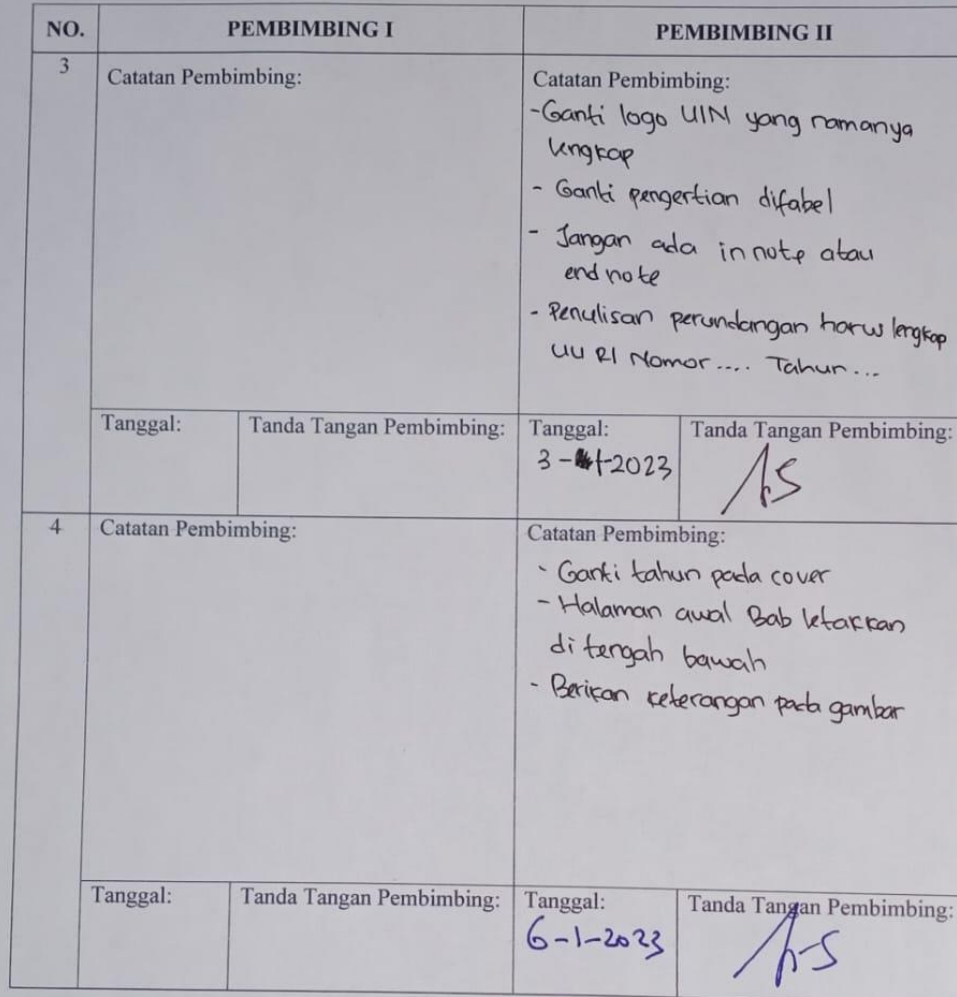 NO. PEMBIMBING I PEMBIMBING II
3 Catatan Pembimbing: Catatan Pembimbing:
-Ganti logo UIN yang namanya
lengkap
- Ganti pengertian difabel
- Jangan ada innote atau
endnote
- Penulisan perundangan harus lengkap
UU RI Nomor .... Tahun ...
Tanggal: Tanda Tangan Pembimbing: Tanggal: Tanda Tangan Pembimbing:
3 - 1-2023
4 Catatan Pembimbing: Catatan Pembimbing:
- Ganti tahun pada cover
- Halaman awal Bab letakkan
di tengah bawah
- Berikan keterangan pada gambar
Tanggal: Tanda Tangan Pembimbing: Tanggal: Tanda Tangan Pembimbing:
6-1-2023